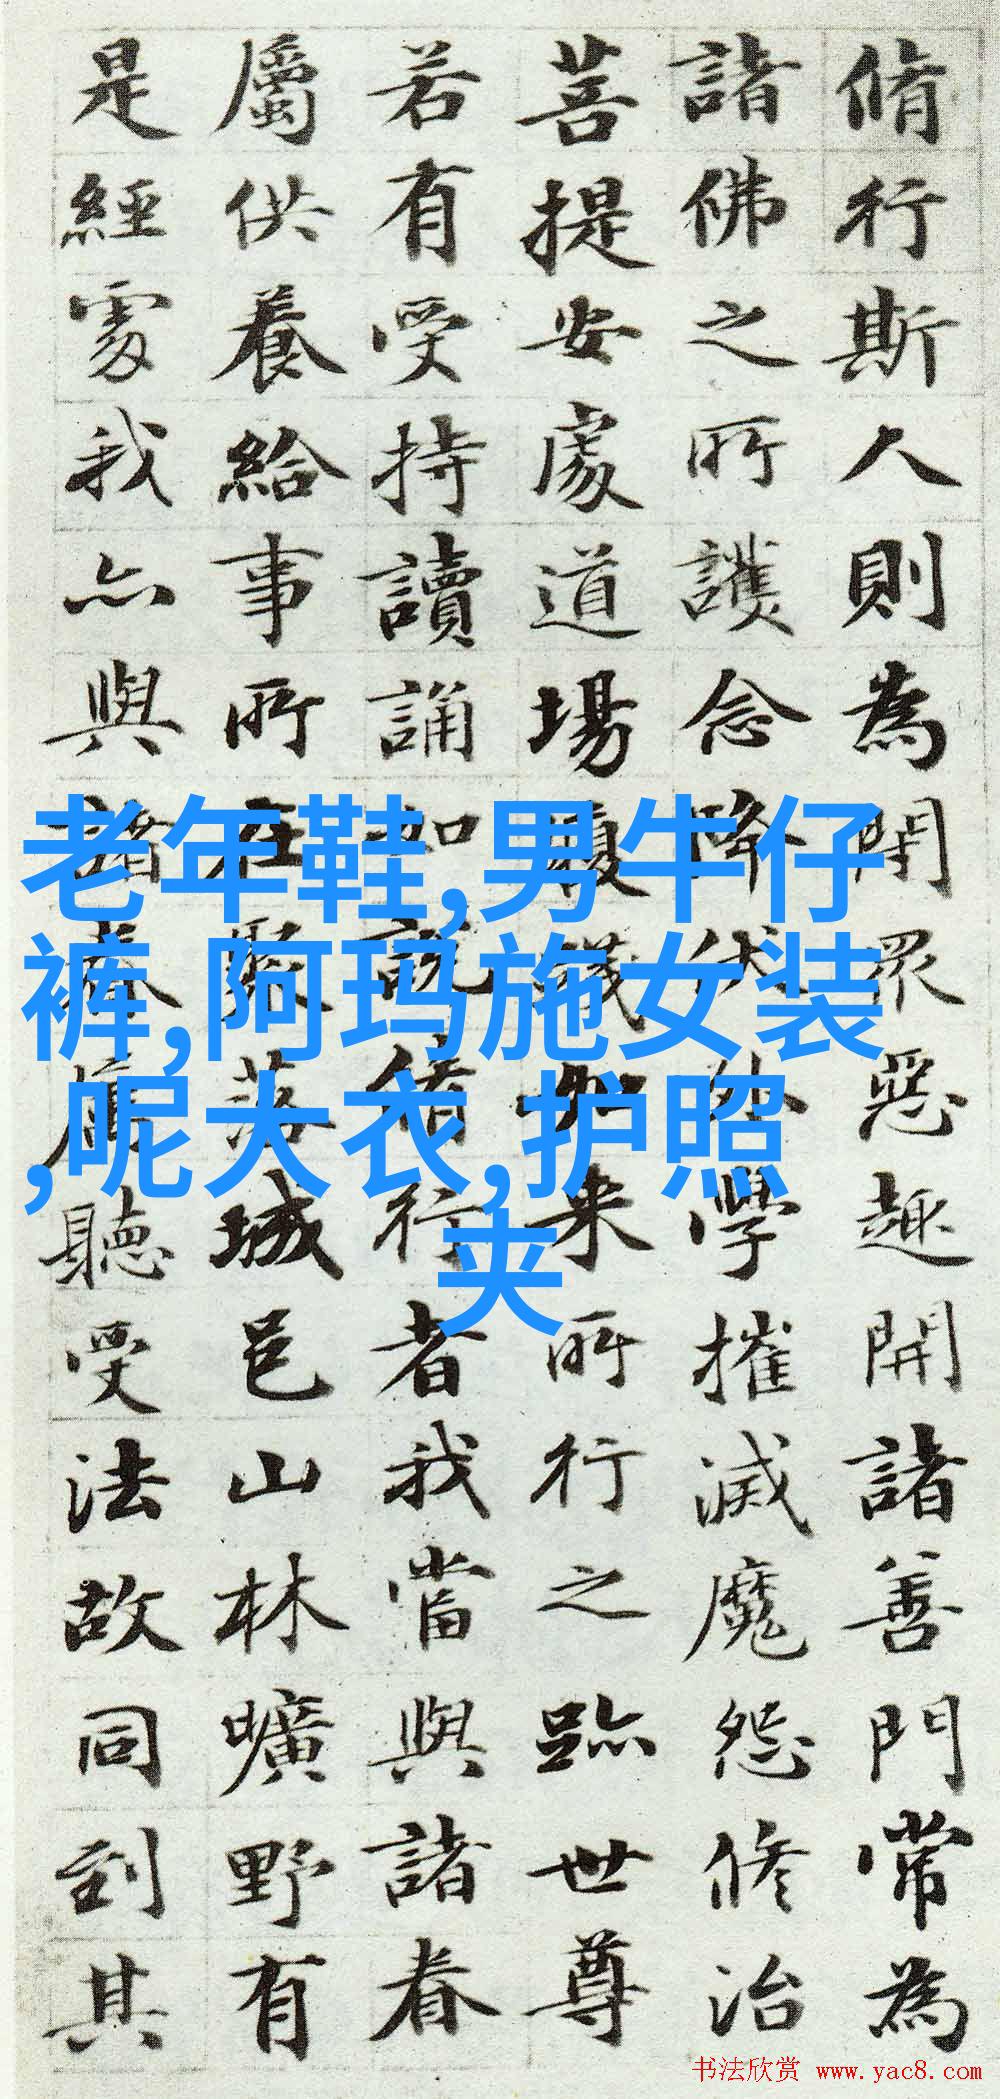 脩行斯人則為閇眾惡趣開諸善門常為
諸佛之所護念降伏外學摧滅魔怨修治
菩提安處道場履踐如来所行之跡世尊
若有受持讀誦如説脩行者我當與諸眷
屬供養給事所在聚落城邑山林曠野有
是經處我亦與諸眷属聽受法故同到其
老年鞋,男牛仔
裤,阿玛施女装
,呢大衣,护照
夹
书法欣赏 www.yac8.com